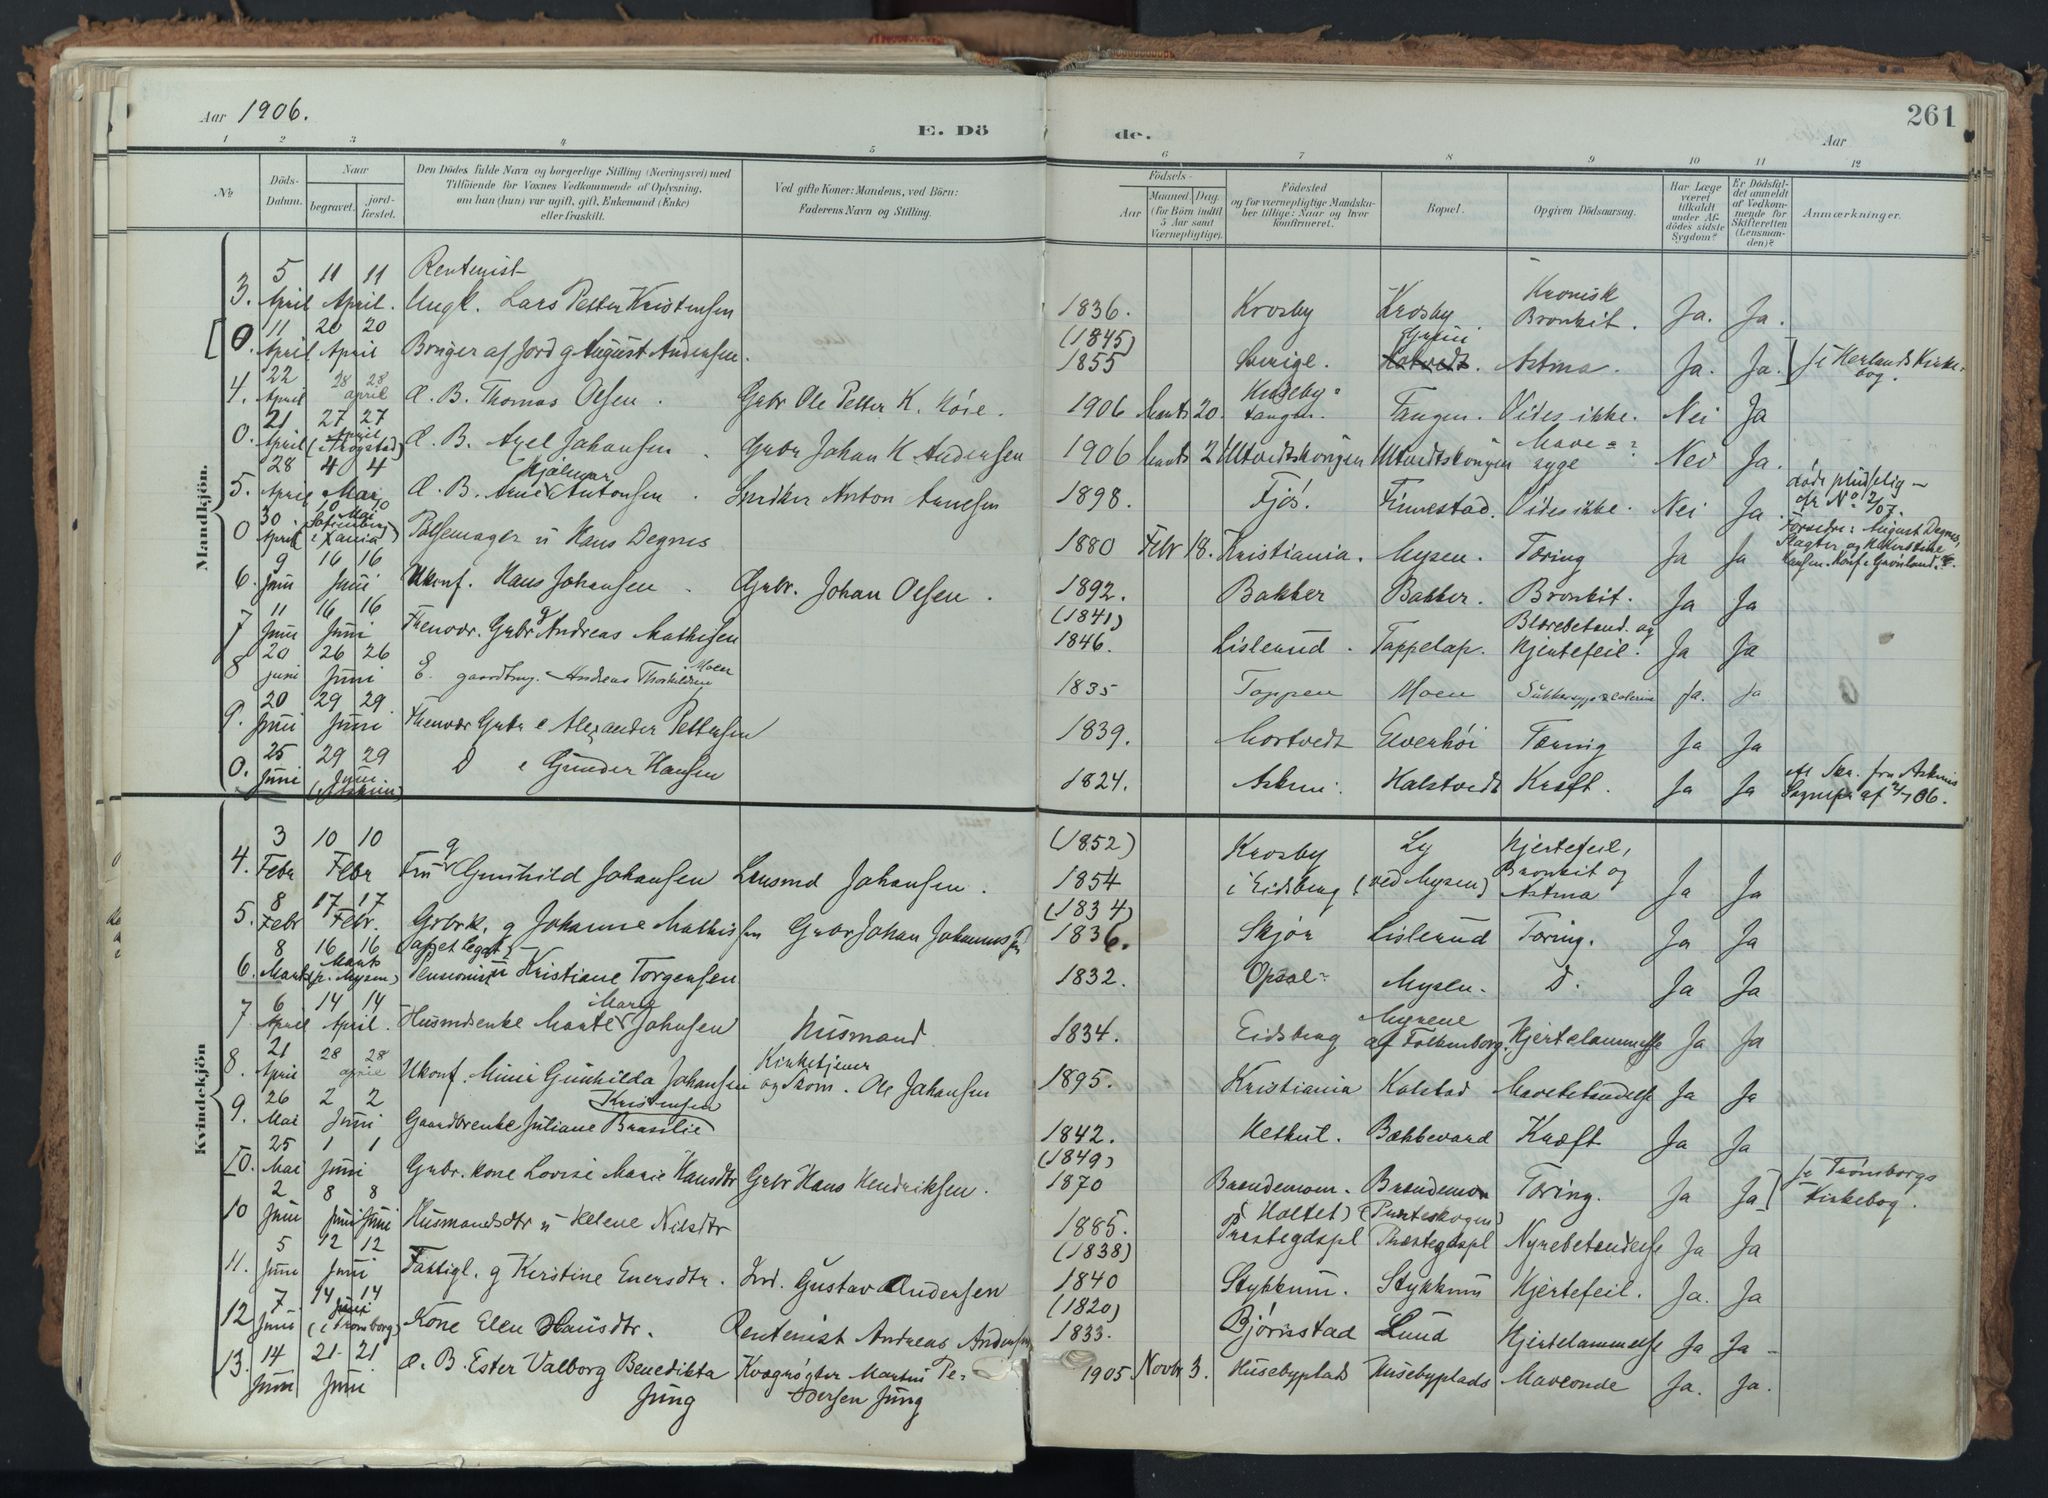 Aar 1906.
E. Döde.
261
Aar
1 2 3 4 5 6 7 8 9 10 11 12
No
Döds-Datum.
Naar
begravet.
jordfæstet.
Den Dödes fulde Navn og borgerlige Stilling (Næringsvei) med
Tilföiende for Voxnes Vedkommende af Oplysning,
om han (hun) var ugift, gift, Enkemand (Enke)
eller fraskilt.
Ved gifte Koner: Mandens, ved Börn:
Faderens Navn og Stilling.
Födsels-
Aar
Maaned Dag
(for Börn indtil
5 Aar samt
Værnepligtige).
Födested
og for værnepligtige Mandskaber tillige: Naar og hvor
konfirmeret.
Bopæl.
Opgiven Dödsaarsag.
Har Læge
været
tilkaldt
under Afdödes sidste
Sygdom?
Er Dödsfaldet anmeldt
af Vedkommende for
Skifteretten
(Lensmanden)?
Anmærkninger.
Mandkjön.
3. 5 April 11 April 11 Rentenist Ungk. Lars Petter Kristensen 1836. Krosby Krosby Kronisk Bronkit. Ja. Ja.
0. 11 April 20 April 20 Bruger af Jord g August Andersen (1845) 1855 Sverige. Astma. Ja. Ja. fr Herlands Kirkebog.
4. 22 April 28 april 28 Æ. B. Thomas Olsen. Gbr Ole Petter K. 1906 Marts 20. Tangen. Vides ikke. Nei Ja
0. 21 April 27 April 27 (i Trøgstad) Æ. B. Axel Johansen. Gbr Johan K Andersen 1906 Marts 2 Utvedtskongen Utvedtskongen Mavesyge? Nei Ja.
5. 28 April 4 Mai 4 Æ. B. Arne Hjalmar Antonsen. Snekker Anton Arnesen 1898. Fjøs. Finnestad. Vides ikke. Nei Ja. døde pludselig – cfr No 2/07.
0 30 April 10 Mai 10 Pølsemager u Hans Degnes 1880 Febr 18. Kristiania. Mysen. Tæring Ja Ja Forældre: August Degnes,
6. 9 Juni 16 Juni 16 Ukonf. Hans Johansen. Gbr. Johan Olsen. 1892. Bakker Bakker. Bronkit. Ja Ja
7 11 Juni 16 Juni 16 Fhenvær. Gbr g Andreas Mathisen (1841) 1846. Lislerud. Tappelap. Blærebetænd. og Hjertefeil. Ja Ja
8 20 juni 26 Juni 26 E. gaardbrug. Andreas Thorkildsen Moen 1835 Toppen Moen Sukkersyge Ja. Ja
9. 20 Juni 29 Juni 29. Fhenvær Gbr e Alexander Pettersen 1839. Mortvedt Elverhøi Tæring Ja Ja
0. 25 Juni 29 Juni 29 (Askim) D e Gunder Hansen 1824. Askim. Halstvedt Kræft. Ja Ja fra Askims Sognepr af 2/7 06.
Kvindekjön
4. 3 Febr 10 Febr 10 Fru g Gunhild Johansen Lensmd Johansen. (1852) 1854 Krosby i Eidsberg Ly (ved Mysen) Hjertefeil, Bronkit og Astma Ja Ja
5. 8 Febr 17 Febr. 17 Gbrk. g Johanne Mathisen Gbr Johan Johannessen (1834) 1836. Skjør Lislerud Tæring. Ja Ja
6. 8 Marts 16 Marts 16 (p. Mysen) Pensionist u Kristiane Torgersen 1832. Opsal Mysen. D. Ja Ja
7 6 April 14 April. 14 Husmdsenke Marte Marie Johnsen Husmand 1834. Eidsberg Myrene af Folkenborg. Hjertelammelse Ja Ja
8. 21 April 28 april 28 Ukonf. Mina Gunhilda Johansen Kirketjener og Skom. Ole Johansen 1895. Kristiania Kolstad Mavebetændelse Ja Ja
9. 26 Mai 2 Juni 2 Gaardbrenke Juliane Brasilie Kristensen 1842. Bækkevard Kræft Ja Ja
0. 25 Mai 1 Juni 1 Gbr. kone Lovise Marie Hansdtr Gbr Hans Hendriksen. (1849) 1870 Brændemoen. Brændemoen Tæring. Ja Ja fr Trømborgs Kirkebog.
10 2 Juni 8 Juni 8 Juni Husmandsdtr u Helene Nilsdtr 1885. (Holtet) Præstegdspl Præstegdspl Nyrebetændelse Ja Ja
11. 5 Juni 12 Juni 12 Fattigl. g Kerstine Enersdtr. Ind. Gustav Andersen (1838) 1840 Stykkum. Stykkum Hjertefeil. Ja. Ja
12 7 Juni 14 Juni 14 (i Trømborg) Kone Elen Hansdtr. Rentenist Andreas Andersen (1820) 1833. Bjørnstad Lund Hjertelammelse Ja Ja
13. 14 Juni 21 Juni 21 Æ. B. Ester Valborg Benedikta Jung Kvægrøgter Martin Pedersen Jung 1905 Novbr 3. Husebyplads Husebyplads Maveonde Ja. Ja.